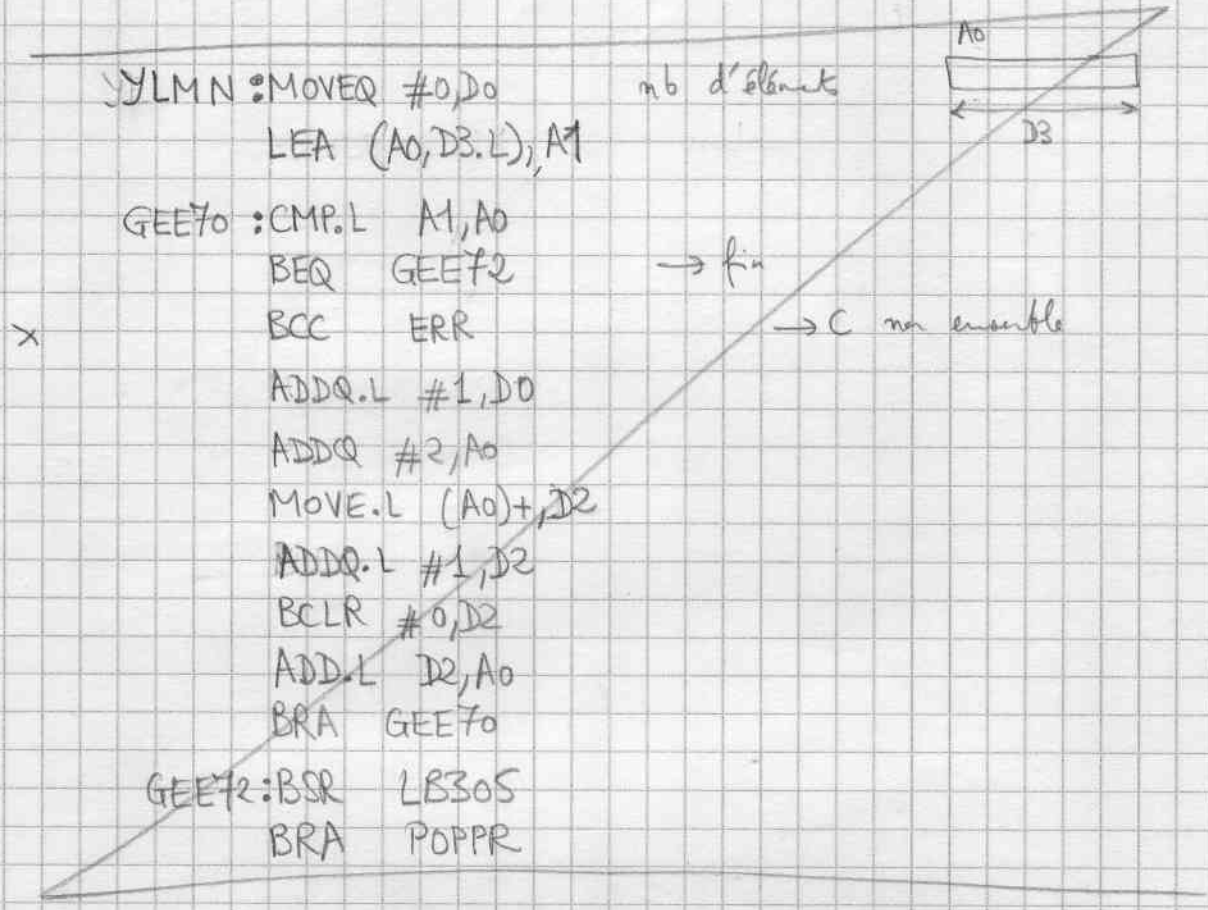 A0
YLMN :MOVEQ #0,D0 nb d'éléments
LEA (A0,D3.L),A1
D3
GEE70 :CMP.L A1,A0
BEQ GEE72 → fin
× BCC ERR → C non ensemble
ADDQ.L #1,D0
ADDQ #2,A0
MOVE.L (A0)+,D2
ADDQ.L #1,D2
BCLR #0,D2
ADD.L D2,A0
BRA GEE70
GEE72:BSR LB305
BRA POPPR